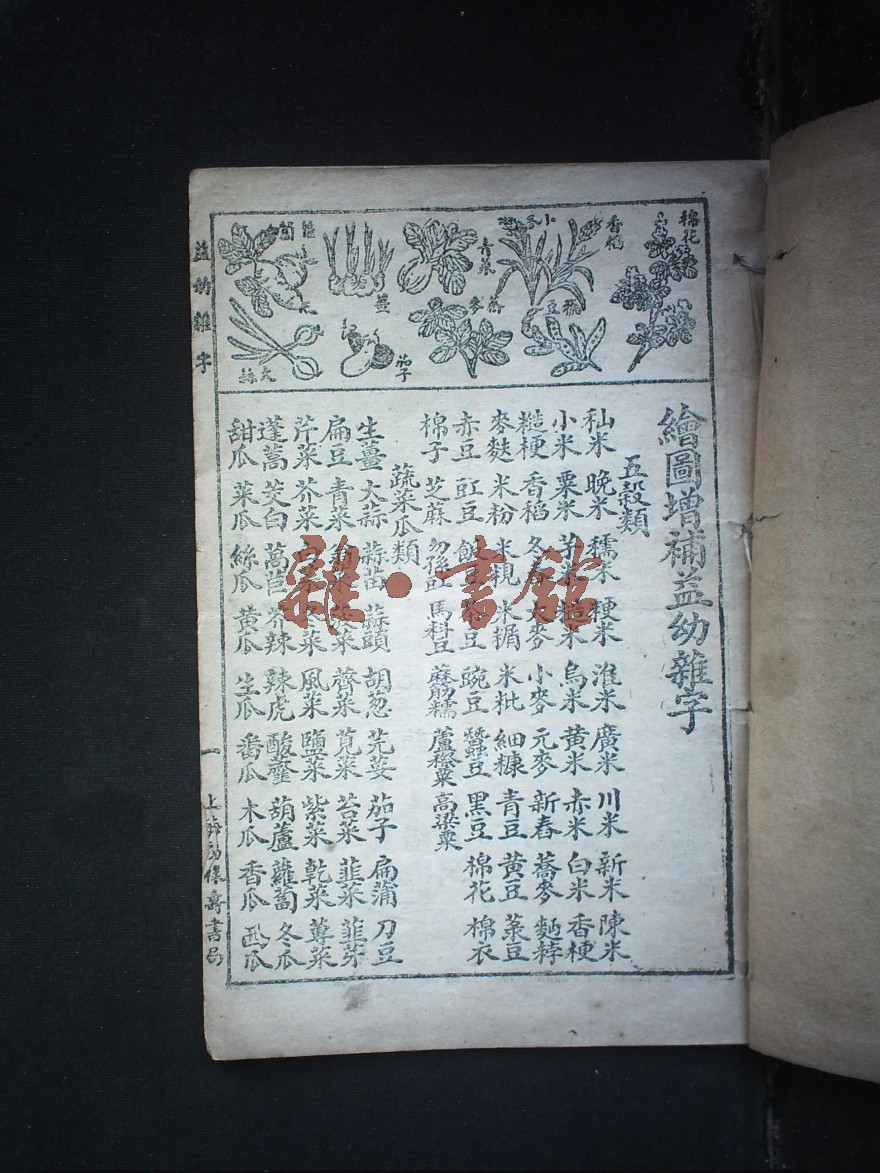 繪圖增補益幼雜字
五穀類
秈米 晚米 穤米 粳米 淮米 廣米 川米 新米 陳米
小米 粟米 芋米 糙米 烏米 黃米 赤米 白米 香梗
糙梗 香稻 冬 大麥 小麥 元麥 新春 蕎麥 麪麩
麥麩 米粉 米粯 米粞 米粃 細糠 青豆 黃豆 菉豆
赤豆 豇豆 飯豆 豌豆 蠶豆 黑豆 棉花 棉衣
棉子 芝蔴 馬料豆 蘆穄粟 高梁粟
蔬菜瓜類
生薑 大蒜 蒜苗 蒜頭 胡葱 芫荽 茄子 扁蒲 刀豆
扁豆 青菜 菜 菜 薺菜 莧菜 苔菜 韭菜 韭芽
芹菜 芥菜 白 菜 風菜 鹽菜 紫菜 乾菜 蓴菜
蓬蒿 茭白 萵苣 芥辣 辣虎 酸虀 葫蘆 蘿蔔 冬瓜
甜瓜 菜瓜 絲瓜 黃瓜 生瓜 番瓜 木瓜 香瓜 西瓜
棉花
香稻
小麥
豇豆
青菜
蕎麥
薑
茄子
蘿蔔
大蒜
益幼雜字
一
上海 書局
雜·書館